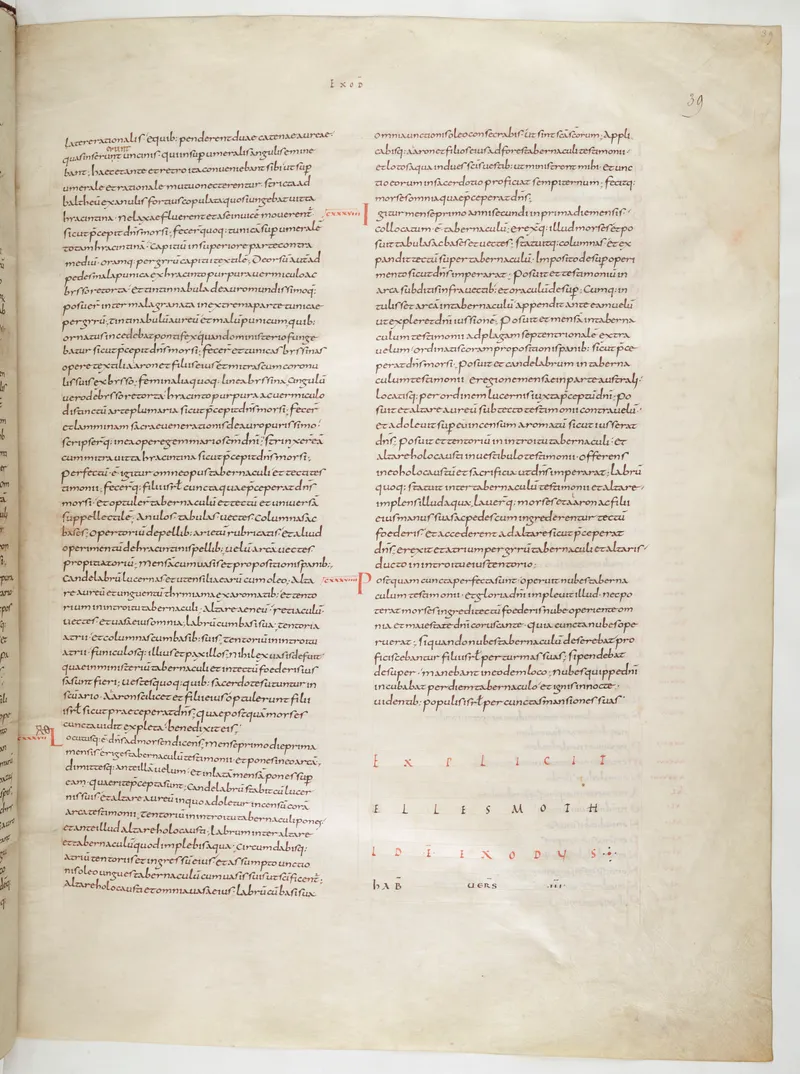 Exod
39
latere rationalis e quib: penderent duae catenae aureae
quas inserunt uncinis qui in sup umeralis angulis emine
erunt
bant; haec et ante et retro ita conueniebant sibi ut sup
umerale et rationale mutuo necterentur stricta ad
balteū et anulis fortius copulata quos iungebat uitta
hiacintina ne laxa fluerent et a se inuicē mouerent
sicut p̄cepit dn̄s mosi; fecer̄ quoq: tunicā sup umerale
totam hiacintinā. capitiū in superiore parte contra
mediū oramq: per gyrū capitii textile; deorsū autē ad
pedes mala punica ex hiacinto purpura uermiculo ac
bysso retorta et tintinnabula de auro mundissimo
posuer̄ inter malagranata in extrema parte tunicae
per gyrū tintinabulū aureū et malū punicum quib:
ornatus incedebat pontifex quando ministerio funge
batur sicut p̄cepit dn̄s mosi; fecer̄ et tunicas byssinas
opere textili aaron et filiis eius et mitras cum coronu
lis suis ex bysso; feminalia quoq: linea byssina cingulū
uero de bysso retorta hiacinto purpura ac uermiculo
distinctū arte plumaria sicut p̄cepit dn̄s mosi; fecer̄
et lamminam sacrae uenerationis de auro purissimo
scripser̄q: in ea opere gemmario scm̄ dn̄i; strinxer̄ eā
cum mitra uitta hiacintina sicut p̄cepit dn̄s mosi;
perfectū ē igitur omne opus tabernaculi et tecti tes
timonii; fecer̄q: filii isrl cuncta quae p̄ceperat dn̄s
mosi et optuler̄ tabernaculū et tectū et uniuersā
suppellectilē. anulos tabulas uectes columnas ac
bases; opertoriū de pellib: arietū rubricatis et aliud
operimentū de hiacintinis pellib; uelū arcā uectes
propitiatoriū; mensā cum uasis et propositionis panib:;
candelabrū lucernas et utensilia earū cum oleo; alta
re aureū et unguentū thymiama ex aromatib: et tento
rium in introitu tabernaculi. altare aeneū retiaculū
uectes et uasa eius omnia; labrū cum basi sua; tentoria
atrii et columnas cum basib: suis; tentoriū in introitu
atrii funiculosq: illius et paxillos; nihil ex uasis defuit
quae in ministeriū tabernaculi et in tectū foederis ius
sa sunt fieri; uestes quoq: quib: sacerdotes utuntur in
scuario aaron scilicet et filii eius optulerunt filii
isrl sicut praeceperat dn̄s; quae postquā moyses
cuncta uidit expleta benedixit eis;
cxxxvii Locutusq: ē dn̄s ad moysen dicens; mense primo die prima
mensis eriges tabernaculū testimonii et pones in eo arcā
dimittesq: ante illā uelum et inlata mensā pones sup
eam quae rite p̄cepta sunt; candelabrū stabit cū lucer
nis suis et altare aureū in quo adoletur incensū corā
arca testimonii; tentoriū in introitu tabernaculi pones
et ante illud altare holocausti; labrum inter altare
et tabernaculū quod implebis aqua; circumdabisq:
atriū tentoriis et ingressū eius et assumpto unctio
nis oleo ungues tabernaculū cum uasis suis ut scificent̄;
altare holocausti et omnia uasa eius labrū cū basi sua
omnia unctionis oleo consecrabis ut sint sc̄a sc̄orum; appli
cabisq: aaron et filios eius ad fores tabernaculi testimonii
et lotos aqua indues sc̄is uestib: ut ministrent mihi et unc
tio eorum in sacerdotio proficiat sempiternum; fecitq:
moyses omnia quae p̄ceperat dn̄s;
cxxxviii Igitur mense primo anni secundi in prima die mensis
collocatum ē tabernaculū; erexitq: illud moyses et po
suit tabulas ac bases et uectes; statuitq: columnas et ex
pandit tectū super tabernaculū imposito desup operi
mento sicut dn̄s imperarat; posuit et testimoniū in
arca subditis infra uectib: et oraculū desup; cumq: in
tulisset arcā in tabernaculū appendit ante eam uelū
ut expleret dn̄i iussionē; posuit et mensā in taberna
culum testimonii ad plagam septentrionalē extra
uelum ordinatis coram propositionis panib: sicut p̄ce
perat dn̄s mosi; posuit et candelabrum in taberna
culum testimonii e regione mensae in parte australi
locatis q: per ordinem lucernis iuxta p̄ceptū dn̄i; po
suit et altare aureū sub tecto testimonii contra uelū
et adoleuit sup eo incensum aromatū sicut iusserat
dn̄s; posuit et tentoriū in introitu tabernaculi et
altare holocausti in uestibulo testimonii offerens
in eo holocaustū et sacrificia ut dn̄s imperarat; labrū
quoq: statuit inter tabernaculū testimonii et altare
implens illud aqua; lauer̄q: moyses et aaron ac filii
eius manus suas ac pedes cum ingrederentur tectū
foederis et accederent ad altare sicut p̄ceperat
dn̄s; erexit et atrium per gyrū tabernaculi et altaris
ducto in introitu eius tentorio;
cxxxviiii Postquam cuncta perfecta sunt operuit nubes taberna
culum testimonii et gloria dn̄i impleuit illud nec po
terat moyses ingredi tectū foederis nube operiente om
nia et maiestate dn̄i coruscante quia cuncta nubes ope
ruerat; siquando nubes tabernaculū deserebat pro
ficiscebantur filii isrl per turmas suas; si pendebat
desuper manebant in eodem loco; nubes quippe dn̄i
incubabat per diem tabernaculo et ignis in nocte
uidentib: populis isrl per cunctas mansiones suas
EXPLICIT
ELLESMOTH
I D Ē EXODUS
hAB̄ UERS̄ .III.